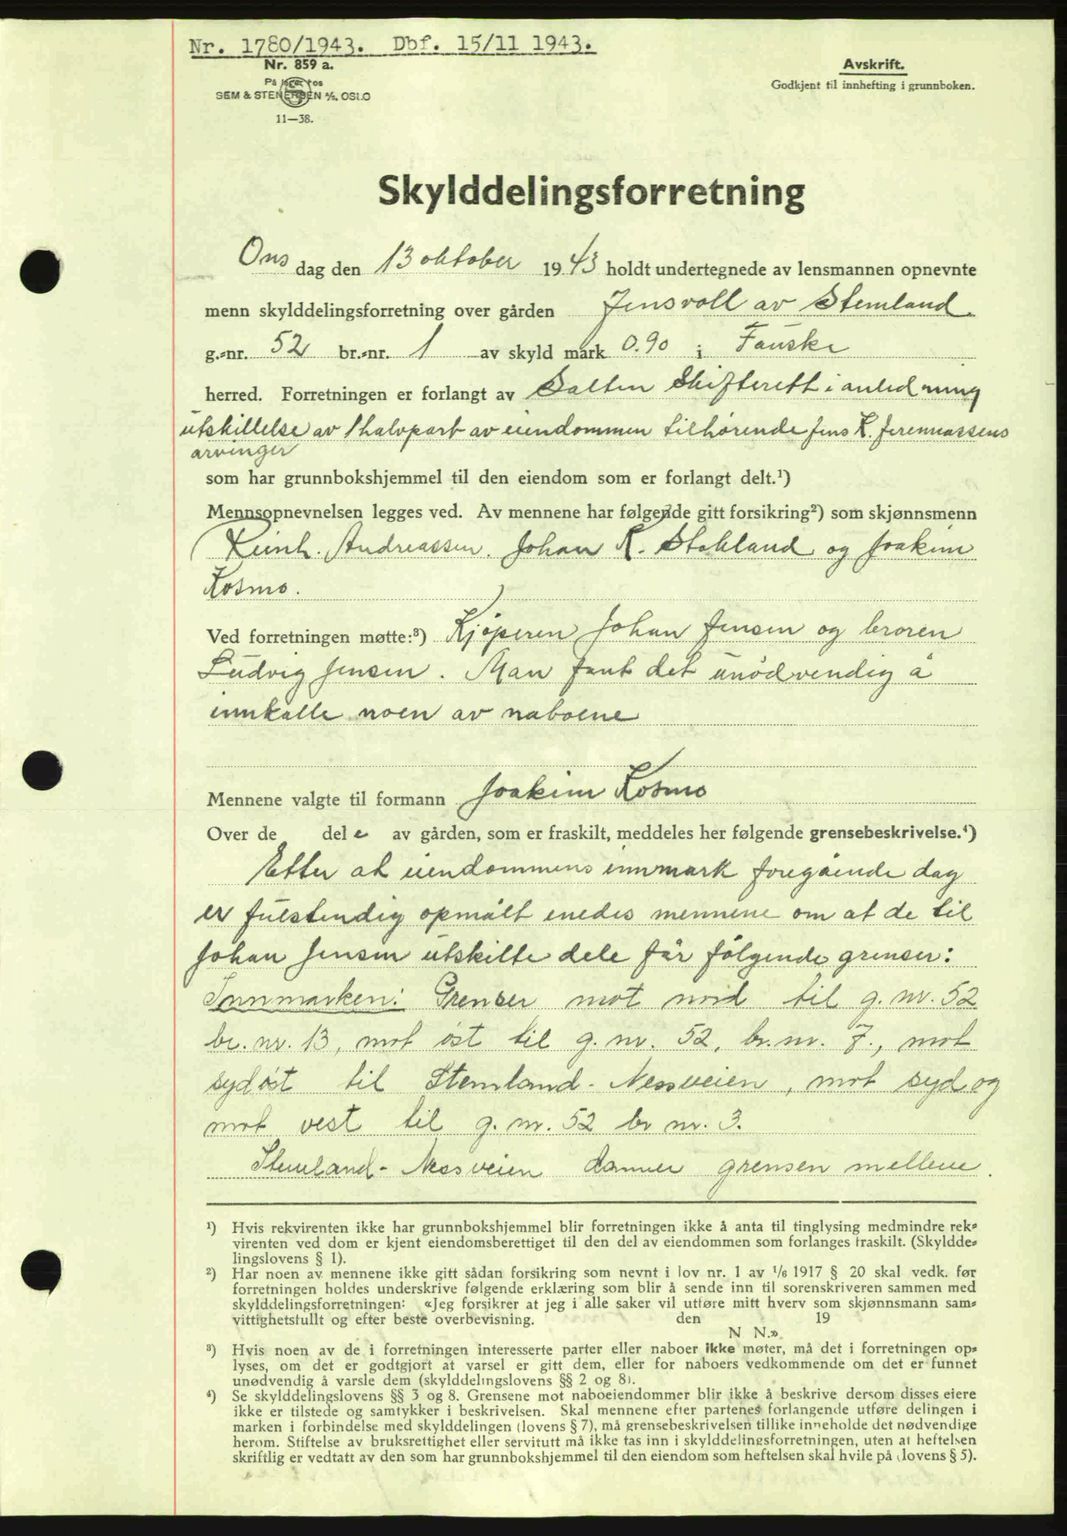 Nr. 1780/1943. Dbf. 15/11 1943.
Nr. 859 a.
På lager hos
SEM & STENERSEN A/S, OSLO
11—38.
Avskrift.
Godkjent til innhefting i grunnboken.
Skylddelingsforretning
Ons dag den 13 oktober 1943 holdt undertegnede av lensmannen opnevnte
menn skylddelingsforretning over gården Jensvoll av Stemland
g.-nr. 52 br.-nr. 1 av skyld mark 0.90 i Fauske
herred. Forretningen er forlangt av Salten Skifterett i anledning
utskillelse av 1 halvpart av eiendommen tilhørende Jens K. Jeremiassens
arvinger
som har grunnbokshjemmel til den eiendom som er forlangt delt.¹)
Mennsopnevnelsen legges ved. Av mennene har følgende gitt forsikring²) som skjønnsmenn
Reinh. Andreassen. Johan R. Stokland og Joakim
Kosmo.
Ved forretningen møtte:³) Kjøperen Johan Jensen og broren
Ludvig Jensen. Man fant det unødvendig å
innkalle noen av naboene
Mennene valgte til formann Joakim Kosmo
Over de del e av gården, som er fraskilt, meddeles her følgende grensebeskrivelse.⁴)
Etter at eiendommens innmark foregående dag
er fulstendig opmålt enedes mennene om at de til
Johan Jensen utskilte dele får følgende grenser:
Innmarken: Grenser mot nord til g. nr. 52
br. nr. 13, mot øst til g. nr. 52, br. nr. 7., mot
sydøst til Stemland - Nessveien, mot syd og
mot vest til g. nr. 52 br nr. 3.
Stemland - Nessveien danner grensen mellem
¹) Hvis rekvirenten ikke har grunnbokshjemmel blir forretningen ikke å anta til tinglysing medmindre rek-
virenten ved dom er kjent eiendomsberettiget til den del av eiendommen som forlanges fraskilt. (Skyldde-
lingslovens § 1).
²) Har noen av mennene ikke gitt sådan forsikring som nevnt i lov nr. 1 av 1/6 1917 § 20 skal vedk. før
forretningen holdes underskrive følgende erklæring som blir å sende inn til sorenskriveren sammen med
skylddelingsforretningen: «Jeg forsikrer at jeg i alle saker vil utføre mitt hverv som skjønnsmann sam-
vittighetsfullt og efter beste overbevisning. den 19
N N.»
³) Hvis noen av de i forretningen interesserte parter eller naboer ikke møter, må det i forretningen op-
lyses, om det er godtgjort at varsel er gitt dem, eller for naboers vedkommende om det er funnet
unødvendig å varsle dem (skylddelingslovens §§ 2 og 8).
⁴) Se skylddelingslovens §§ 3 og 8. Grensene mot naboeiendommer blir ikke å beskrive dersom disses eiere
ikke er tilstede og samtykker i beskrivelsen. Skal mennene efter partenes forlangende utføre delingen i
marken i forbindelse med skylddelingen (lovens § 7), må grensebeskrivelsen tillike inneholde det nødvendige
herom. Stiftelse av bruksrettighet eller servitutt må ikke tas inn i skylddelingsforretningen, uten at heftelsen
skriftlig er vedtatt av den som har grunnbokshjemmel til den eiendom som heftelsen skal hvile på (lovens § 5).